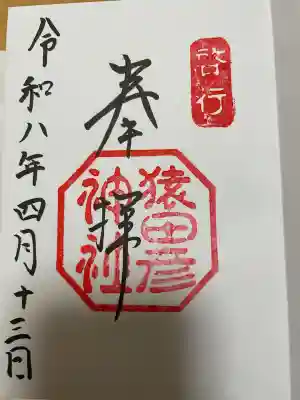 啓行
奉拝
猿田彦
神社
令和八年四月十三日